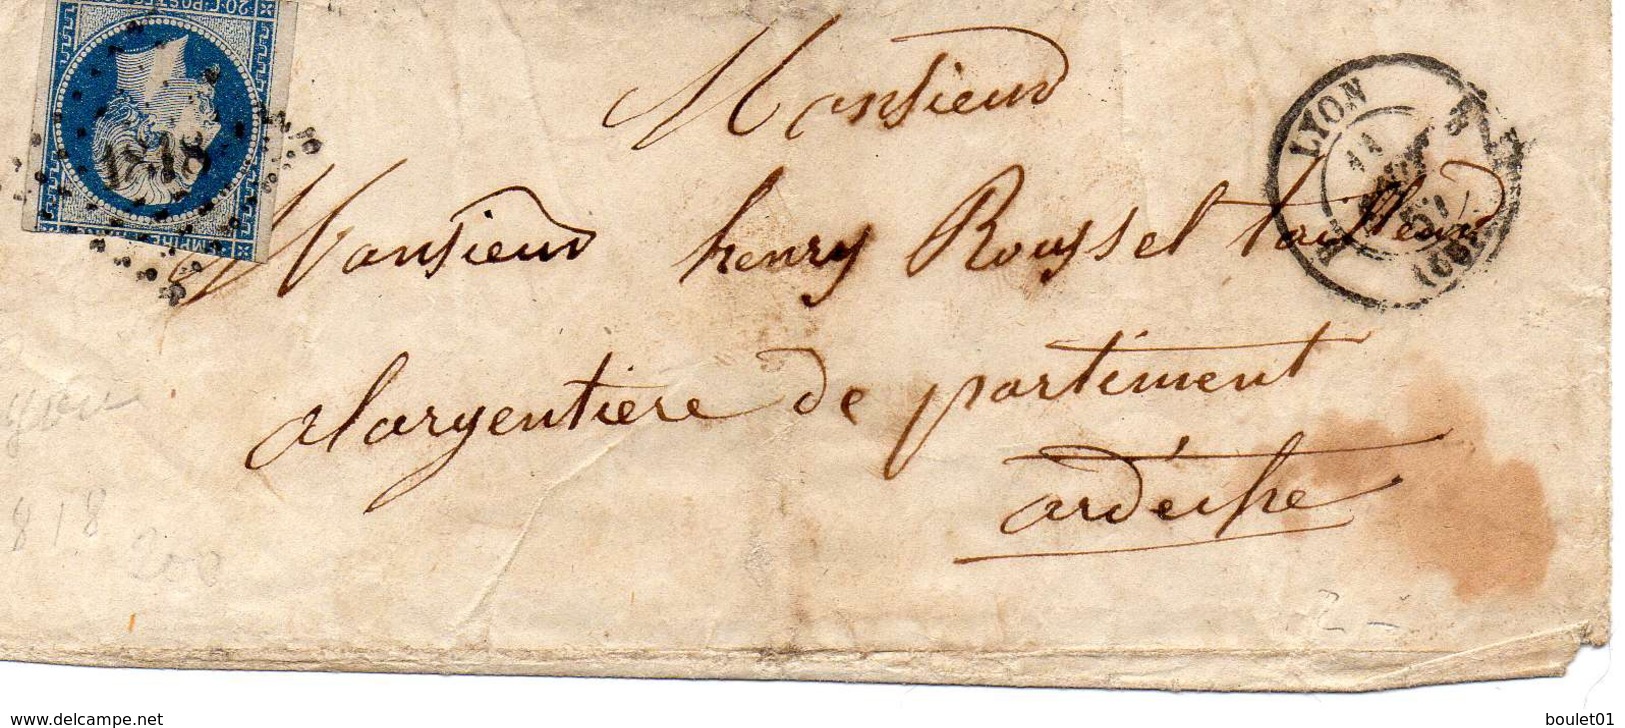 20.C. POSTES
1818
EMPIRE
LYON
11
57
(68)
Monsieur
Monsieur henry Rouyssel tailleur
alargentiere de partiment
ardéche
818
200
www.delcampe.net
boulet01